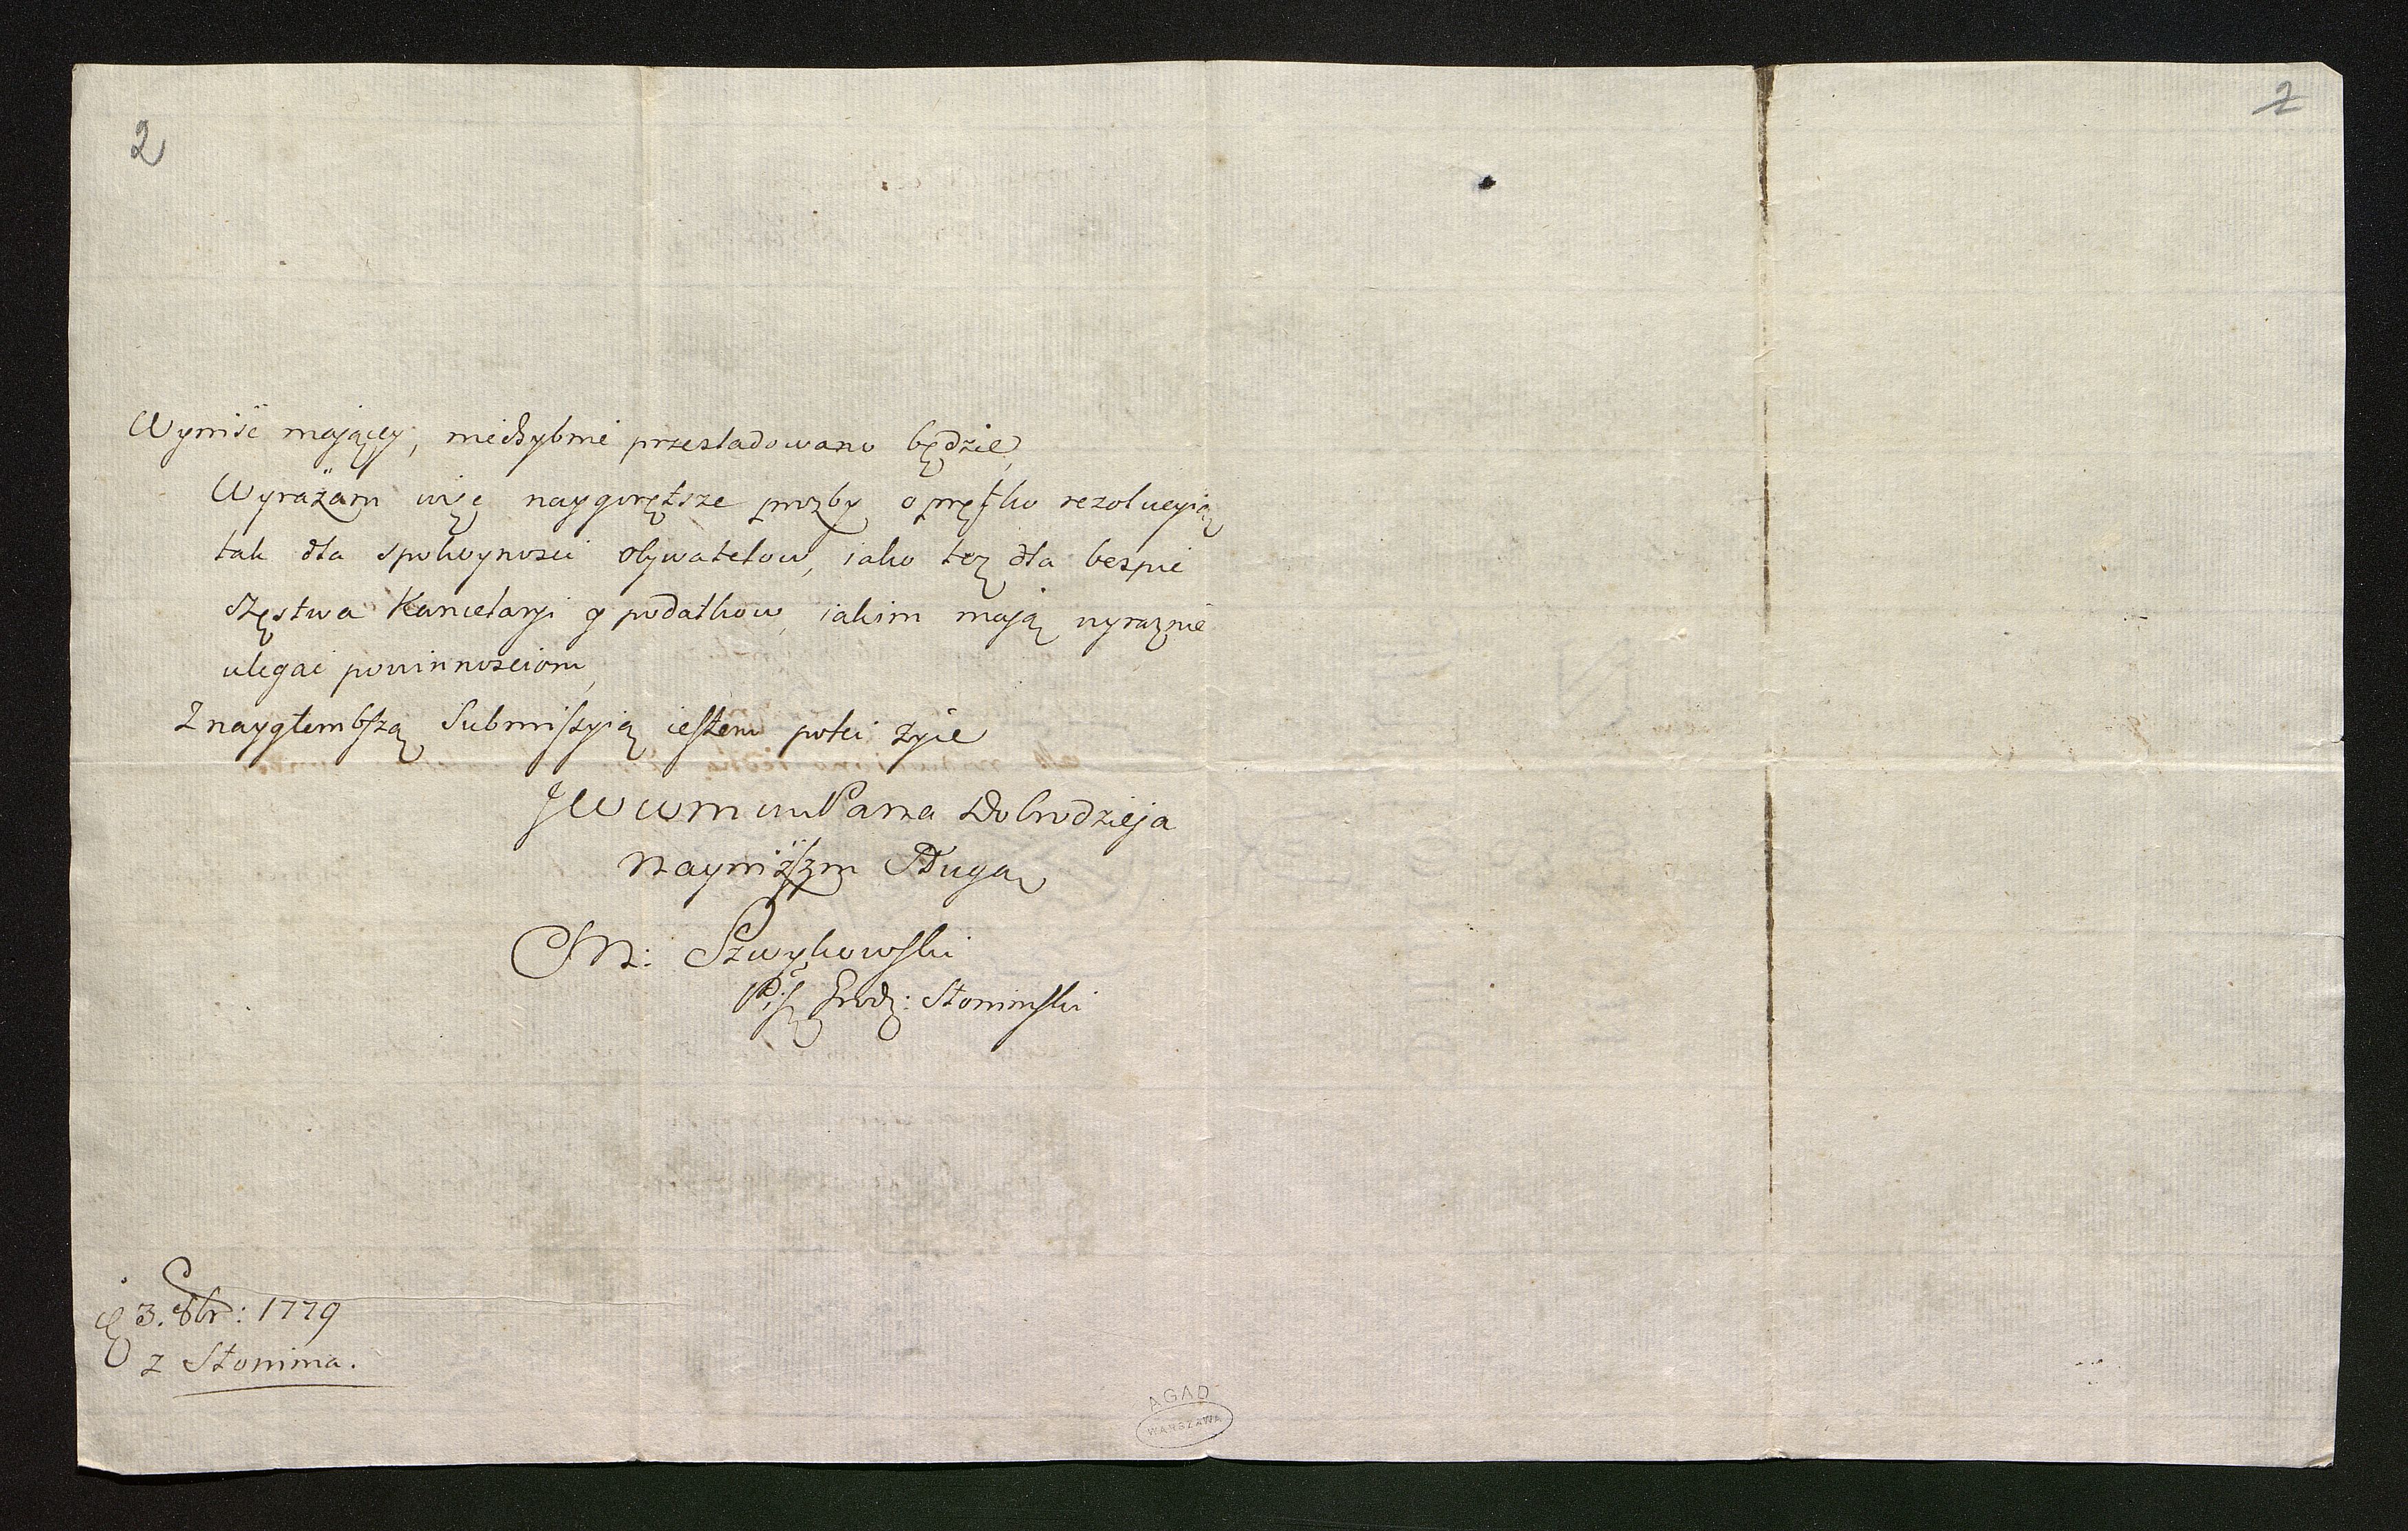 2
2
Wyniść mający, niechybnie prześladowano będzie,
Wyrażam więc naygorętsze prozby o prętko rezolucyią
tak dla spokoynosci obywatelow, iako też dla bespie
częstwa Kancelaryi y podatkow, iakim mają wyraznie
ulegać powinnosciom,
Z naygłembszą Submiszyią iestem poki żyie
JWWM Pana Dobrodzieja
Nayniższm Sługa
M: Szwykowski
Pis: Grodz: Słonimski
3. 8br: 1779
z Słonima.
AGAD
WARSZAWA